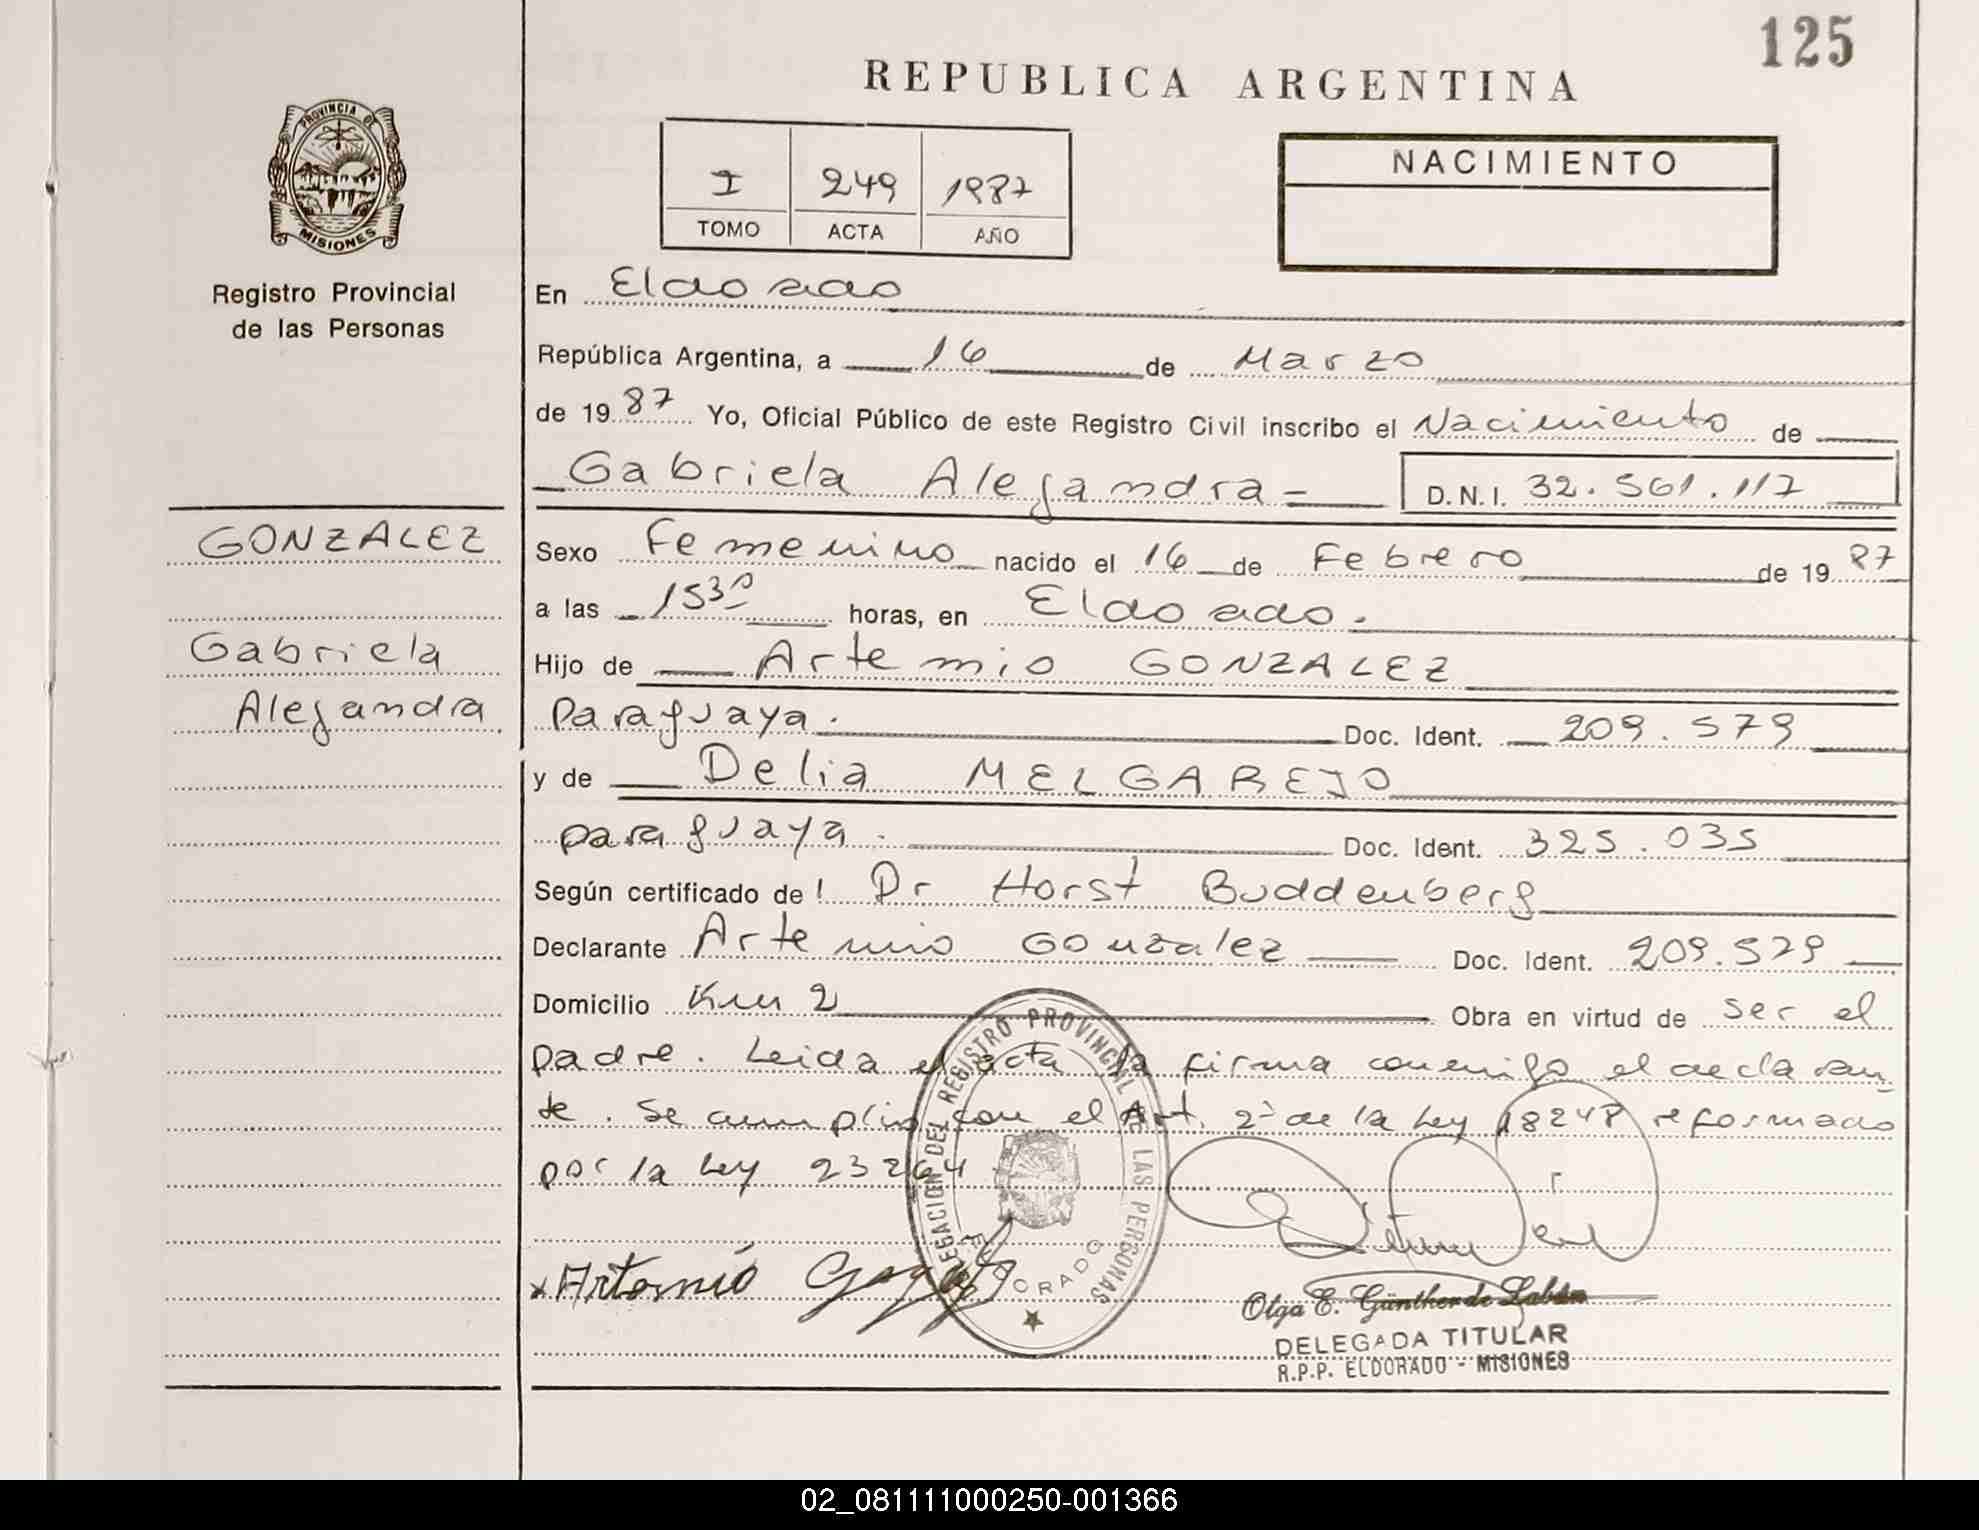 125
REPUBLICA ARGENTINA
PROVINCIA DE
MISIONES
Registro Provincial
de las Personas
I 249 1987
TOMO ACTA AÑO
NACIMIENTO
En Eldorado
República Argentina, a 16 de Marzo
de 1987 Yo, Oficial Público de este Registro Civil inscribo el Nacimiento de
Gabriela Alejandra = D.N.I. 32.561.117
GONZALEZ
Gabriela
Alejandra
Sexo Femenino nacido el 16 de Febrero de 1987
a las 1530 horas, en Eldorado.
Hijo de Artemio GONZALEZ
Paraguaya. Doc. Ident. 209.579
y de Delia MELGAREJO
paraguaya. Doc. Ident. 325.035
Según certificado de! Dr Horst Buddenberg
Declarante Artemio Gonzalez Doc. Ident. 209.579
Domicilio Km 2 Obra en virtud de ser el
padre. Leida el acta la firma conmigo el declaran-
te. Se cumplio con el Art. 2º de la Ley 18248 reformado
por la Ley 23264
DELEGACION DEL REGISTRO PROVINCIAL DE LAS PERSONAS
ELDORADO
x Artemió
Olga E. Günther de Labán
DELEGADA TITULAR
R.P.P. ELDORADO - MISIONES
02_081111000250-001366